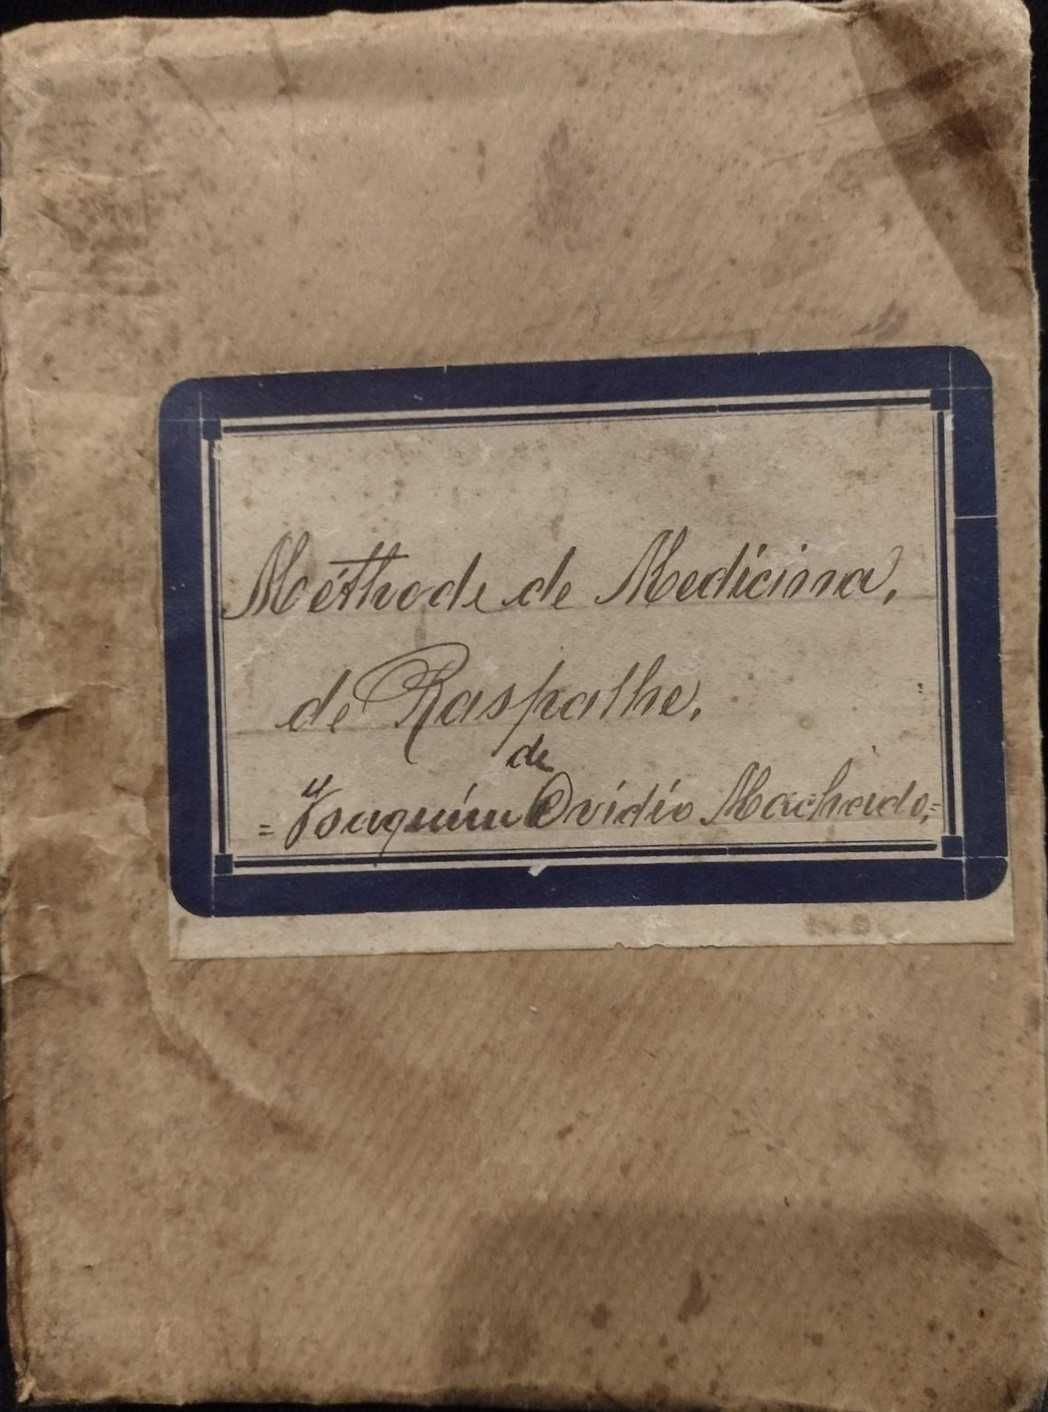 Méthode de Medicina,
de Raspalhe,
de
=Joaquim Ovidio Machado,=